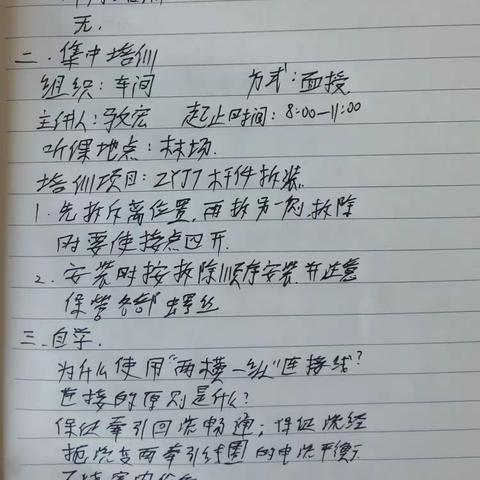 无.
二. 集中培训
组织: 车间 方式: 面授
主讲人: 宏 起止时间: 8:00—11:00
听课地点: 林场.
培训项目: ZYJ7杆件拆装.
1. 先拆斥离位置, 再拆另一侧, 拆除
时要使接点四开.
2. 安装时按拆除顺序安装, 并注意
保管各部螺丝
三. 自学.
为什么使用"两横一纵"连接线?
连接的原则是什么?
保证牵引回流畅通; 保证流经
扼流变两牵引线圈的电流平衡;